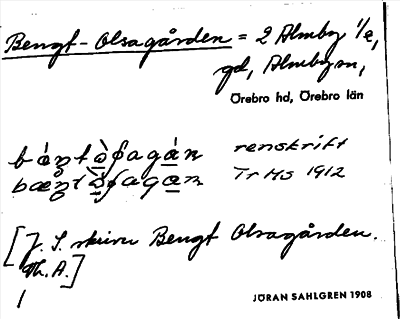 Bengt-Olsagården = 2 Almby 1/2,
gd, Almby sn,
Örebro hd, Örebro län
renskrift
Tr Hs 1912
[J. S. skriver Bengt Olsagården.
Th. A.]
JÖRAN SAHLGREN 1908